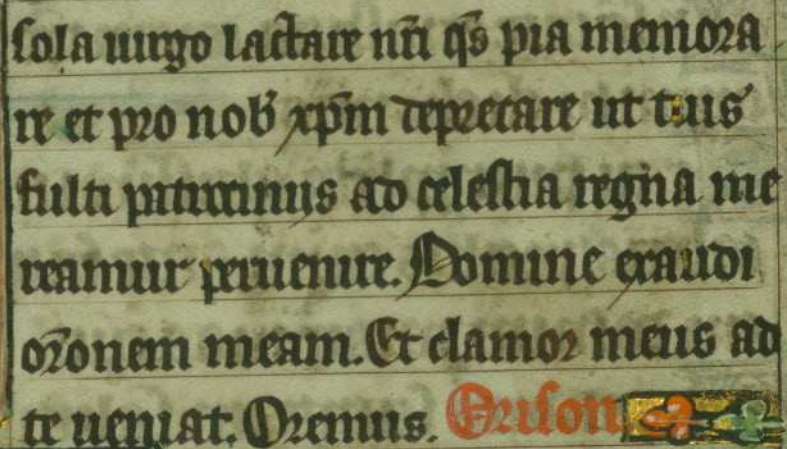 sola uirgo lactare nr̄i q̄s pia memora
re et pro nob̄ xp̄m deprecare ut tuis
fulti patrociniis ad celestia regna me
reamur peruenire. Domine exaudi
or̄onem meam. Et clamor meus ad
te ueniat. Oremus. Orison